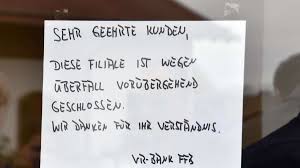 SEHR GEEHRTE KUNDEN,
DIESE FILIALE IST WEGEN
ÜBERFALL VORÜBERGEHEND
GESCHLOSSEN.
WIR DANKEN FÜR IHR VERSTÄNDNIS.
VR-BANK FFB